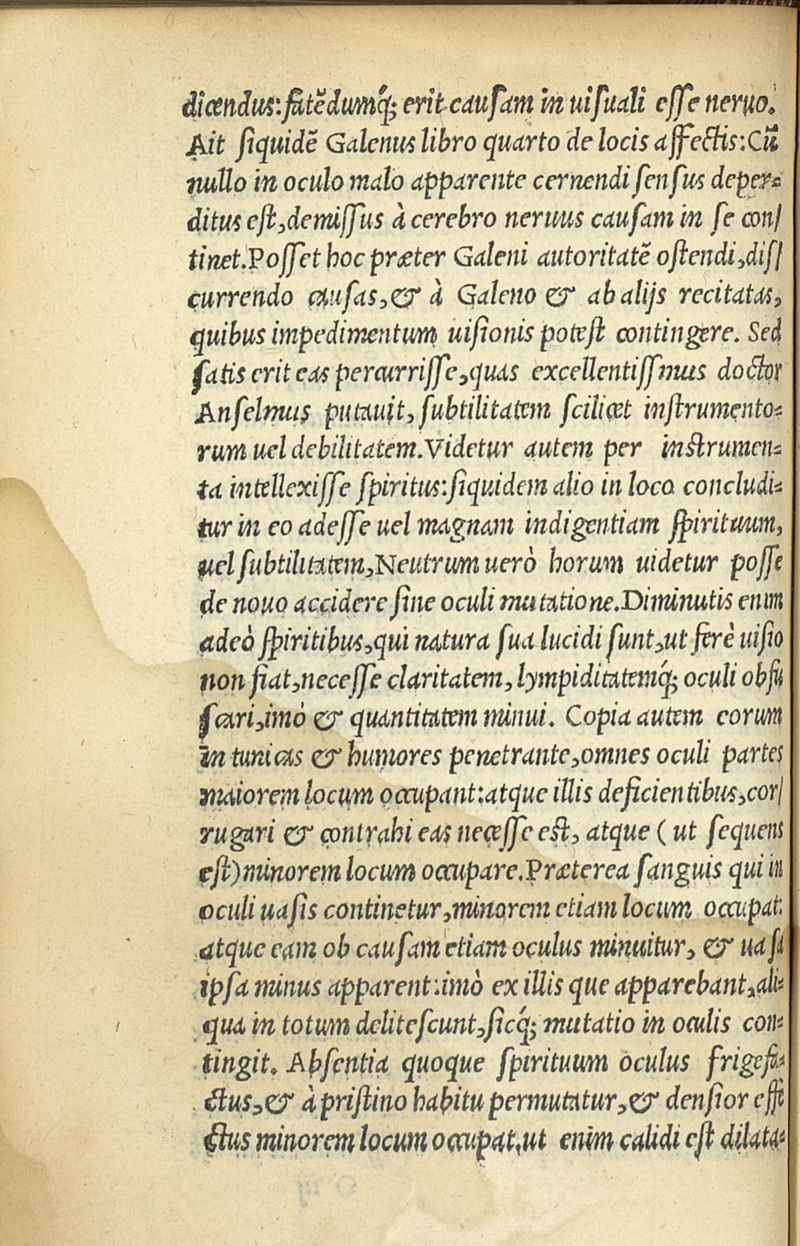 dicendus:fatēdumq́; erit causam in uisuali esse neruo.
Ait siquidē Galenus libro quarto de locis affectis:Cū
nullo in oculo malo apparente cernendi sensus deper-
ditus est,demissus à cerebro neruus causam in se con/
tinet.Posset hoc præter Galeni autoritatē ostendi,dis/
currendo causas,& à Galeno & ab alijs recitatas,
quibus impedimentum uisionis potest contingere. Sed
satis erit eas percurrisse,quas excellentissimus doctor
Anselmus putauit, subtilitatem scilicet instrumento-
rum uel debilitatem.Videtur autem per instrumen-
ta intellexisse spiritus:siquidem alio in loco concludi-
tur in eo adesse uel magnam indigentiam spirituum,
uel subtilitatem,Neutrum uerò horum uidetur posse
de nouo accidere sine oculi mutatione.Diminutis enim
adeò spiritibus,qui natura sua lucidi sunt,ut ferè uisio
non fiat,necesse claritatem, lympiditatemq́; oculi obfu
scari,imò & quantitatem minui. Copia autem eorum
in tunicas & humores penetrante,omnes oculi partes
maiorem locum occupant:atque illis deficientibus,cor/
rugari & contrahi eas necesse est, atque ( ut sequens
est) minorem locum occupare.Præterea sanguis qui in
oculi uasis continetur,minorem etiam locum occupat:
atque eam ob causam etiam oculus minuitur, & uasa
ipsa minus apparent:imò ex illis que apparebant,ali-
qua in totum delitescunt,sicq́; mutatio in oculis con-
tingit. Absentia quoque spirituum oculus frigefa-
ctus,& à pristino habitu permutatur,& densior effe
ctus minorem locum occupat,ut enim calidi est dilata-